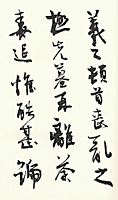 羲之頓首喪亂之
極先墓再離荼
毒追惟酷甚號